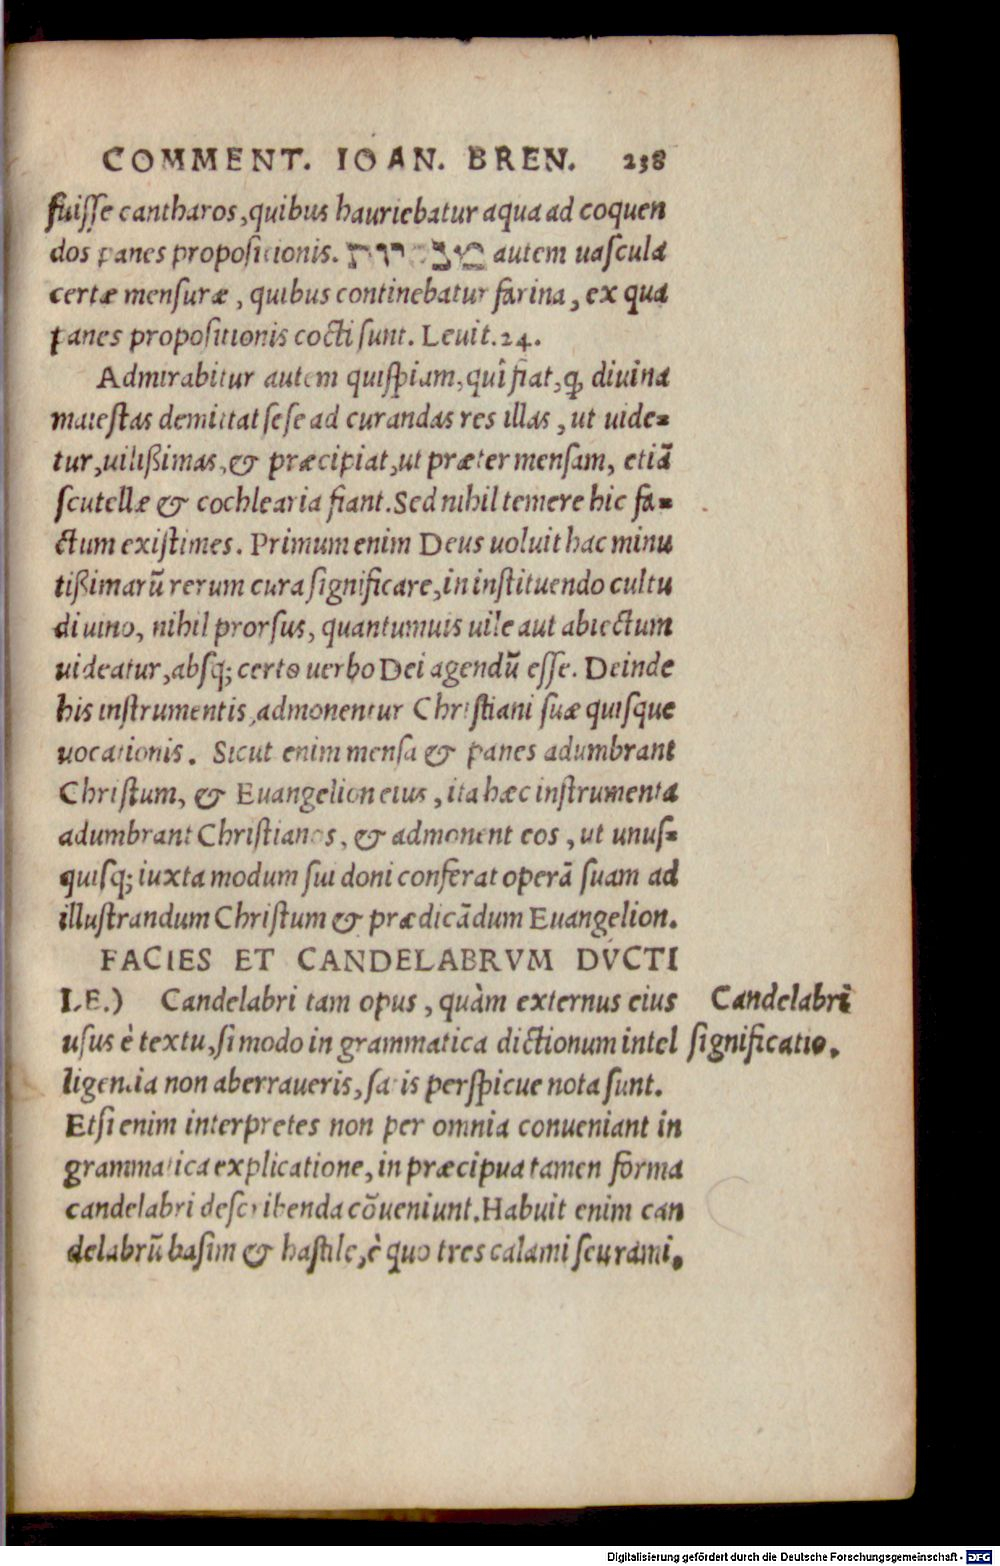 COMMENT. IOAN. BREN. 238
fuiſſe cantharos, quibus hauriebatur aqua ad coquen
dos panes propoſitionis. autem uaſcula
certæ menſuræ, quibus continebatur farina, ex qua
panes propoſitionis cocti ſunt. Leuit. 24.
Admirabitur autem quiſpiam, quî fiat, ꝙ diuina
maieſtas demittat ſeſe ad curandas res illas, ut uide=
tur, uilißimas, & præcipiat, ut præter menſam, etiã
ſcutellæ & cochlearia fiant. Sed nihil temere hic fa=
ctum exiſtimes. Primum enim Deus uoluit hac minu
tißimarũ rerum cura ſignificare, in inſtituendo cultu
diuino, nihil prorſus, quantumuis uile aut abiectum
uideatur, abſq; certo uerbo Dei agendũ eſſe. Deinde
his inſtrumentis, admonentur Chriſtiani ſuæ quiſque
uocationis. Sicut enim menſa & panes adumbrant
Chriſtum, & Euangelion eius, ita hæc inſtrumenta
adumbrant Chriſtianos, & admonent eos, ut unuſ=
quiſq; iuxta modum ſui doni conferat operã ſuam ad
illuſtrandum Chriſtum & prædicãdum Euangelion.
FACIES ET CANDELABRVM DVCTI
LE.) Candelabri tam opus, quàm externus eius
uſus è textu, ſi modo in grammatica dictionum intel
ligentia non aberraueris, ſatis perſpicue nota ſunt.
Etſi enim interpretes non per omnia conueniant in
grammatica explicatione, in præcipua tamen forma
candelabri deſcribenda cõueniunt. Habuit enim can
delabrũ baſim & haſtile, è quo tres calami ſeu rami,
Candelabri
ſignificatio.
Digitalisierung gefördert durch die Deutsche Forschungsgemeinschaft - DFG